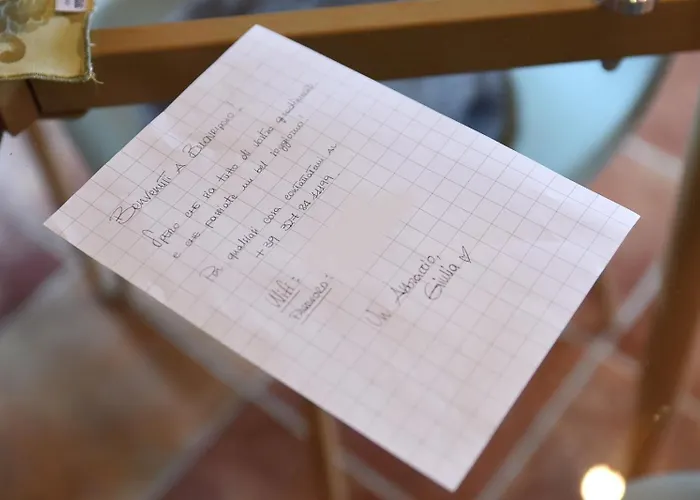 Benvenuti A Buonriposo!
Spero che sia tutto di vostro gradimento
e che passiate un bel soggiorno!
Per qualsiasi cosa contattatemi al
+39 324 81
Wifi:
Password:
Un Abbraccio,
Giulia